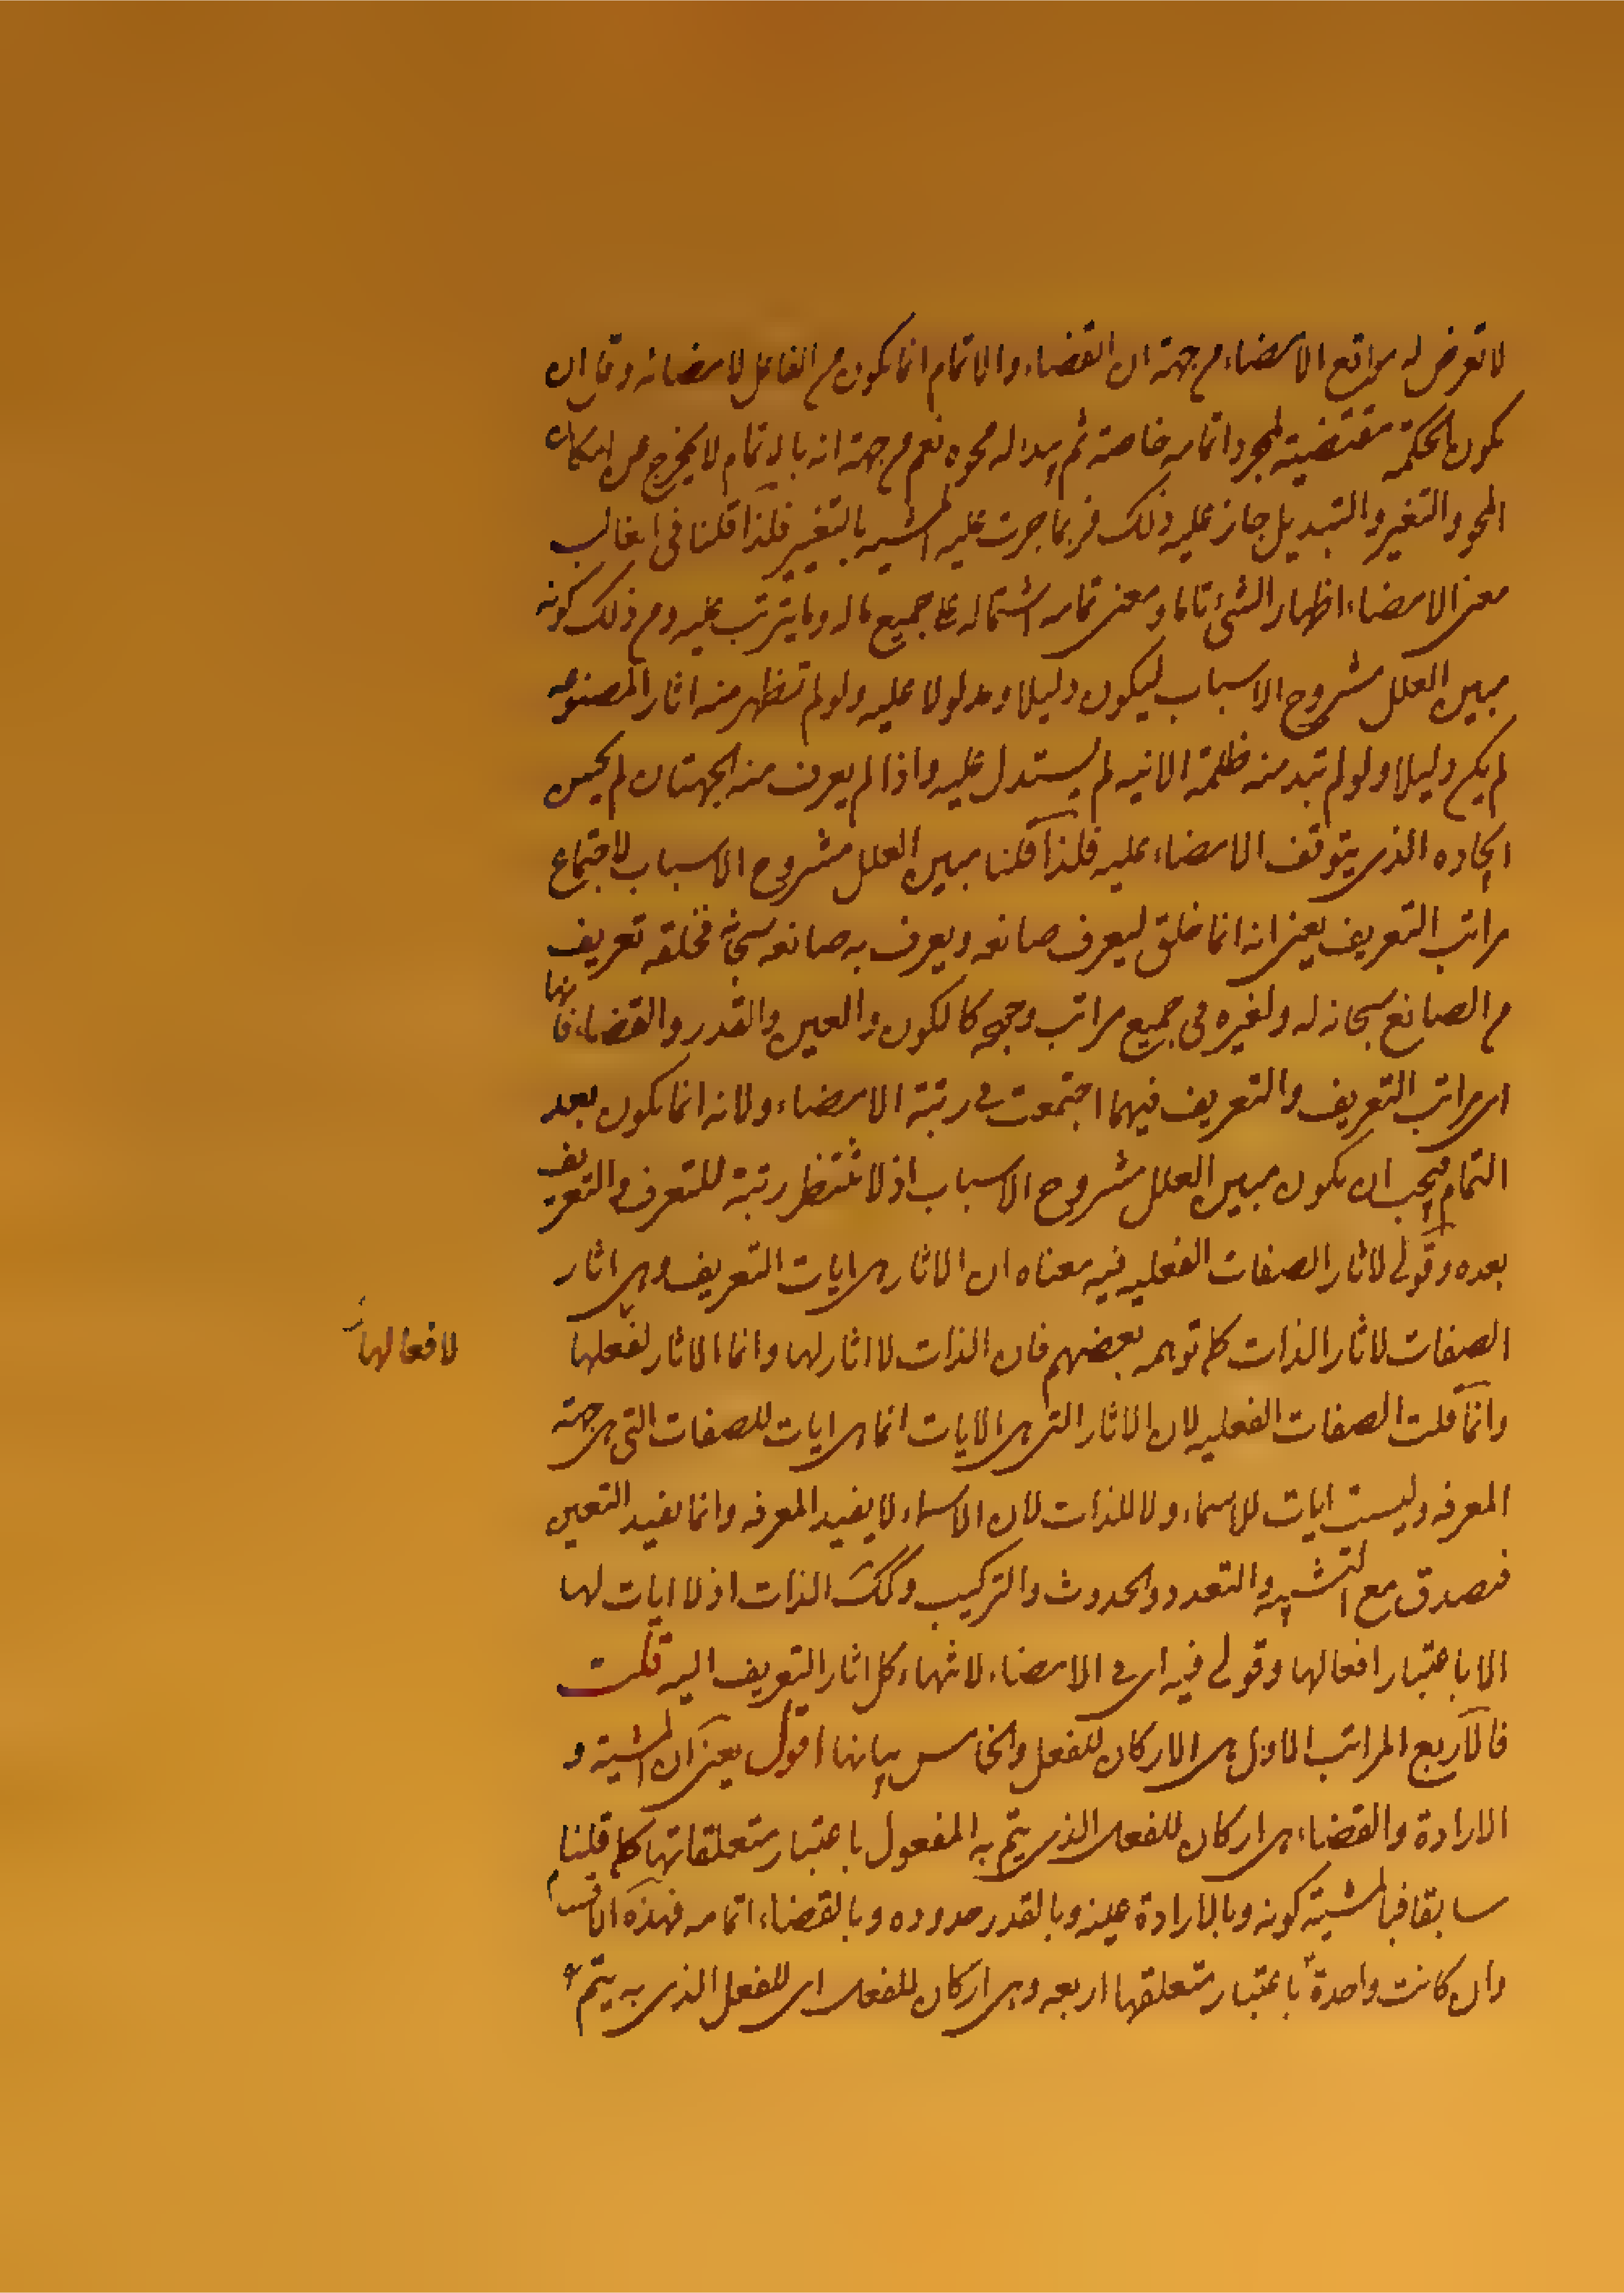 لا تعرض له موانع الامضاء من جهة ان القضاء والاتمام انما يكون من الفاعل لامضائه وقل ان
يكون الحكمة مقتضية لمجرد اتمامه خاصة ثم يبدا له محوه نعم من جهة انه بالاتمام لا يخرج عن امكان
المحو والتغير والتبديل جاز عليه ذلك فربما جرت عليه المشيه بالتغيير فلذا قلنا فى الغالب
معنى الامضاء اظهار الشئ تاما ومعنى تمامه اشتماله على جميع ماله وما يترتب عليه ومن ذلك كونه
مبين العلل مشروح الاسباب ليكون دليلا ومدلولا عليه ولو لم تظهر منه اثار المصنوعيه
لم يكن دليلا ولو لم تبد منه ظلمة الانيه لم يستدل عليه واذا لم يعرف منه الجهتان لم يحسن
ايجاده الذى يتوقف الامضاء عليه فلذا قلنا مبين العلل مشروح الاسباب لاجتماع
مراتب التعريف يعنى انه انما خلق ليعرف صانعه ويعرف به صانعه سبحانه فخلقه تعريف
من الصانع سبحانه له ولغيره فى جميع مراتب وجوده كالكون والعين والقدر والقضاء فانها
اى مراتب التعريف والتعريف فيهما اجتمعت فى رتبة الامضاء ولانه انما يكون بعد
التمام فيجب ان يكون مبين العلل مشروح الاسباب اذ لا تنتظر رتبة للتعرف والتعريف
بعده وقولى لاثار الصفات الفعليه فيه معناه ان الاثار هى ايات التعريف وهى اثار
الصفات لا اثار الذات كما توهمه بعضهم فان الذات لا اثار لها وانما الاثار لفعلها
لافعالها
وانما قلت الصفات الفعليه لان الاثار التى هى الايات انما هى ايات للصفات التى هى جهة
المعرفه وليست ايات للاسماء ولا للذات لان الاسماء لا يفيد المعرفه وانما يفيد التعين
فتصدق مع التشبيه والتعدد والحدوث والتركيب وكك الذات اذ لا ايات لها
الا باعتبار افعالها وقولى فيه اى فى الامضاء لانتهاء كل اثار التعريف اليه قلت
فالاربع المراتب الاول هى الاركان للفعل والخامس بيانها اقول يعنى ان المشية و
الارادة والقضاء هى اركان للفعل الذى يتم به المفعول باعتبار متعلقاتها كما قلنا
سابقا فبالمشية كونه وبالارادة عينه وبالقدر حدوده وبالقضاء اتمامه فهذه الاقسام
وان كانت واحدة باعتبار متعلقها اربعه وهى اركان للفعل اى للفعل الذى به يتم